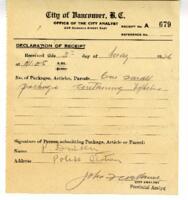 City of Vancouver, B.C.
OFFICE OF THE CITY ANALYST
RECEIPT No. A 679
REFERENCE No.
DECLARATION OF RECEIPT
Received this 5 day of 19
at
No. of Packages, Articles, Parcels: One small
package containing
Signature of Person submitting Package, Article or Parcel:
Name
Address Police Station
CITY ANALYST
Provincial Analyst